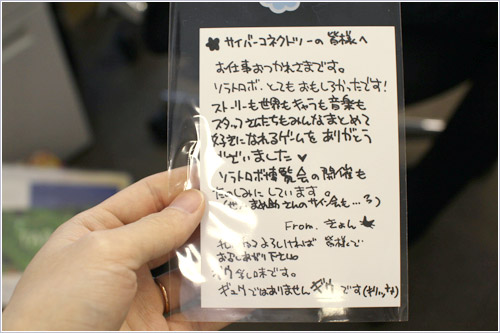 サイバーコネクトツーの皆様へ
お仕事おつかれさまです。
ソラトロボ、とてもおもしろかったです!
ストーリーも世界もキャラも音楽も
スタッフさんたちもみんなまとめて
好きになれるゲームをありがとう
ございました♥
ソラトロボ博覧会の開催も
たのしみにしています。
さんのサイン会も…3)
From. きょん
よろしければ 皆様で
おめしあがり下さい。
ギウ 味です。
ギュウではありませんギウです